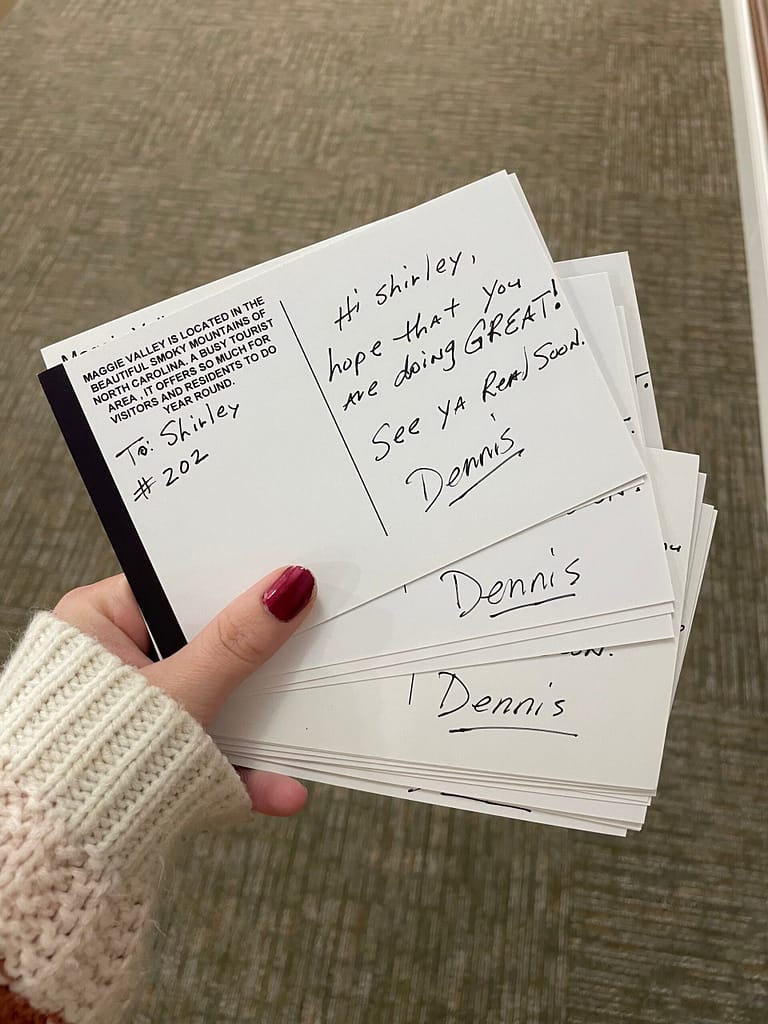 MAGGIE VALLEY IS LOCATED IN THE
BEAUTIFUL SMOKY MOUNTAINS OF
NORTH CAROLINA. A BUSY TOURIST
AREA , IT OFFERS SO MUCH FOR
VISITORS AND RESIDENTS TO DO
YEAR ROUND.
To: Shirley
# 202
Hi Shirley,
hope that you
are doing GREAT!
See ya Real Soon.
Dennis
Dennis
Dennis